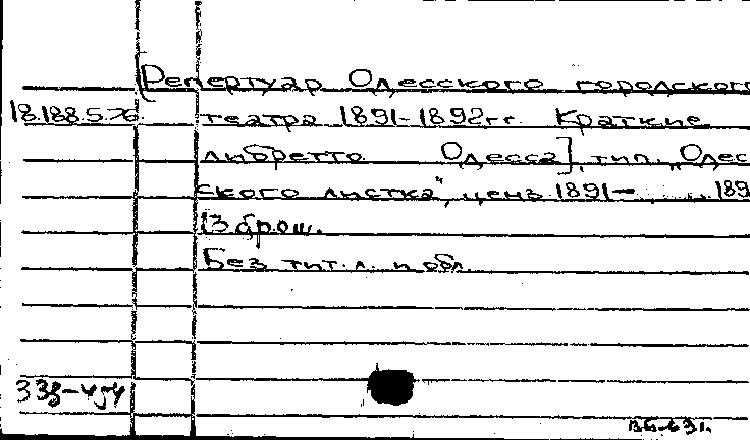 [Репертуар Одесского городского
18.188.5.76. театра 1891-1892 гг. Краткие
либретто Одесса], тип. „Одес
ского листка", ценз 1891- ..... 189
13 брош.
Без тит. л. и обл.
338-454